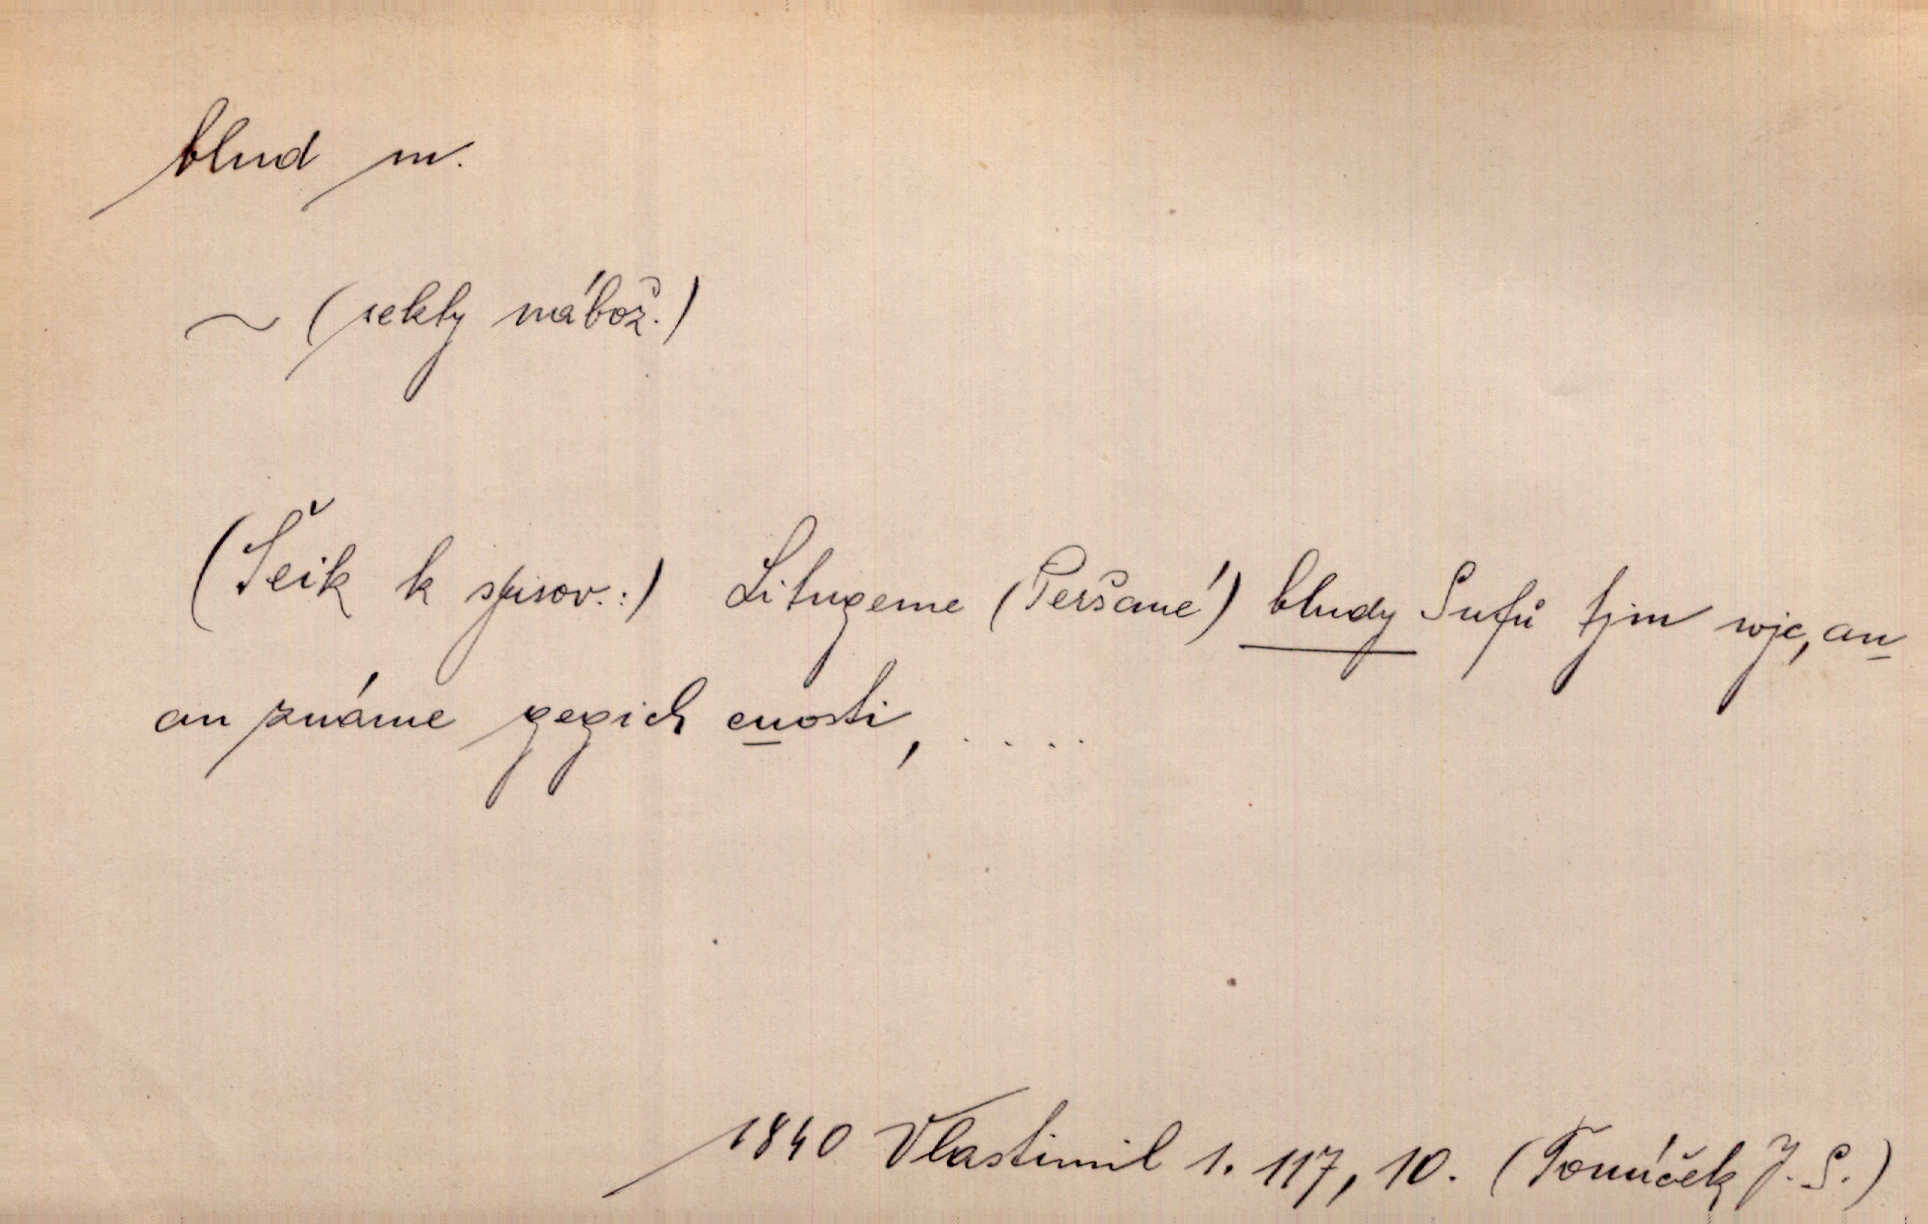 blud m.
~ (sekty nábož.)
(Šeik k spisov.:) Litugeme (Peršané) bludy Sufů tjm wjc, an
an známe gegich cnosti, .....
1840 Vlastimil 1. 117, 10. (Tomíček J. S.)